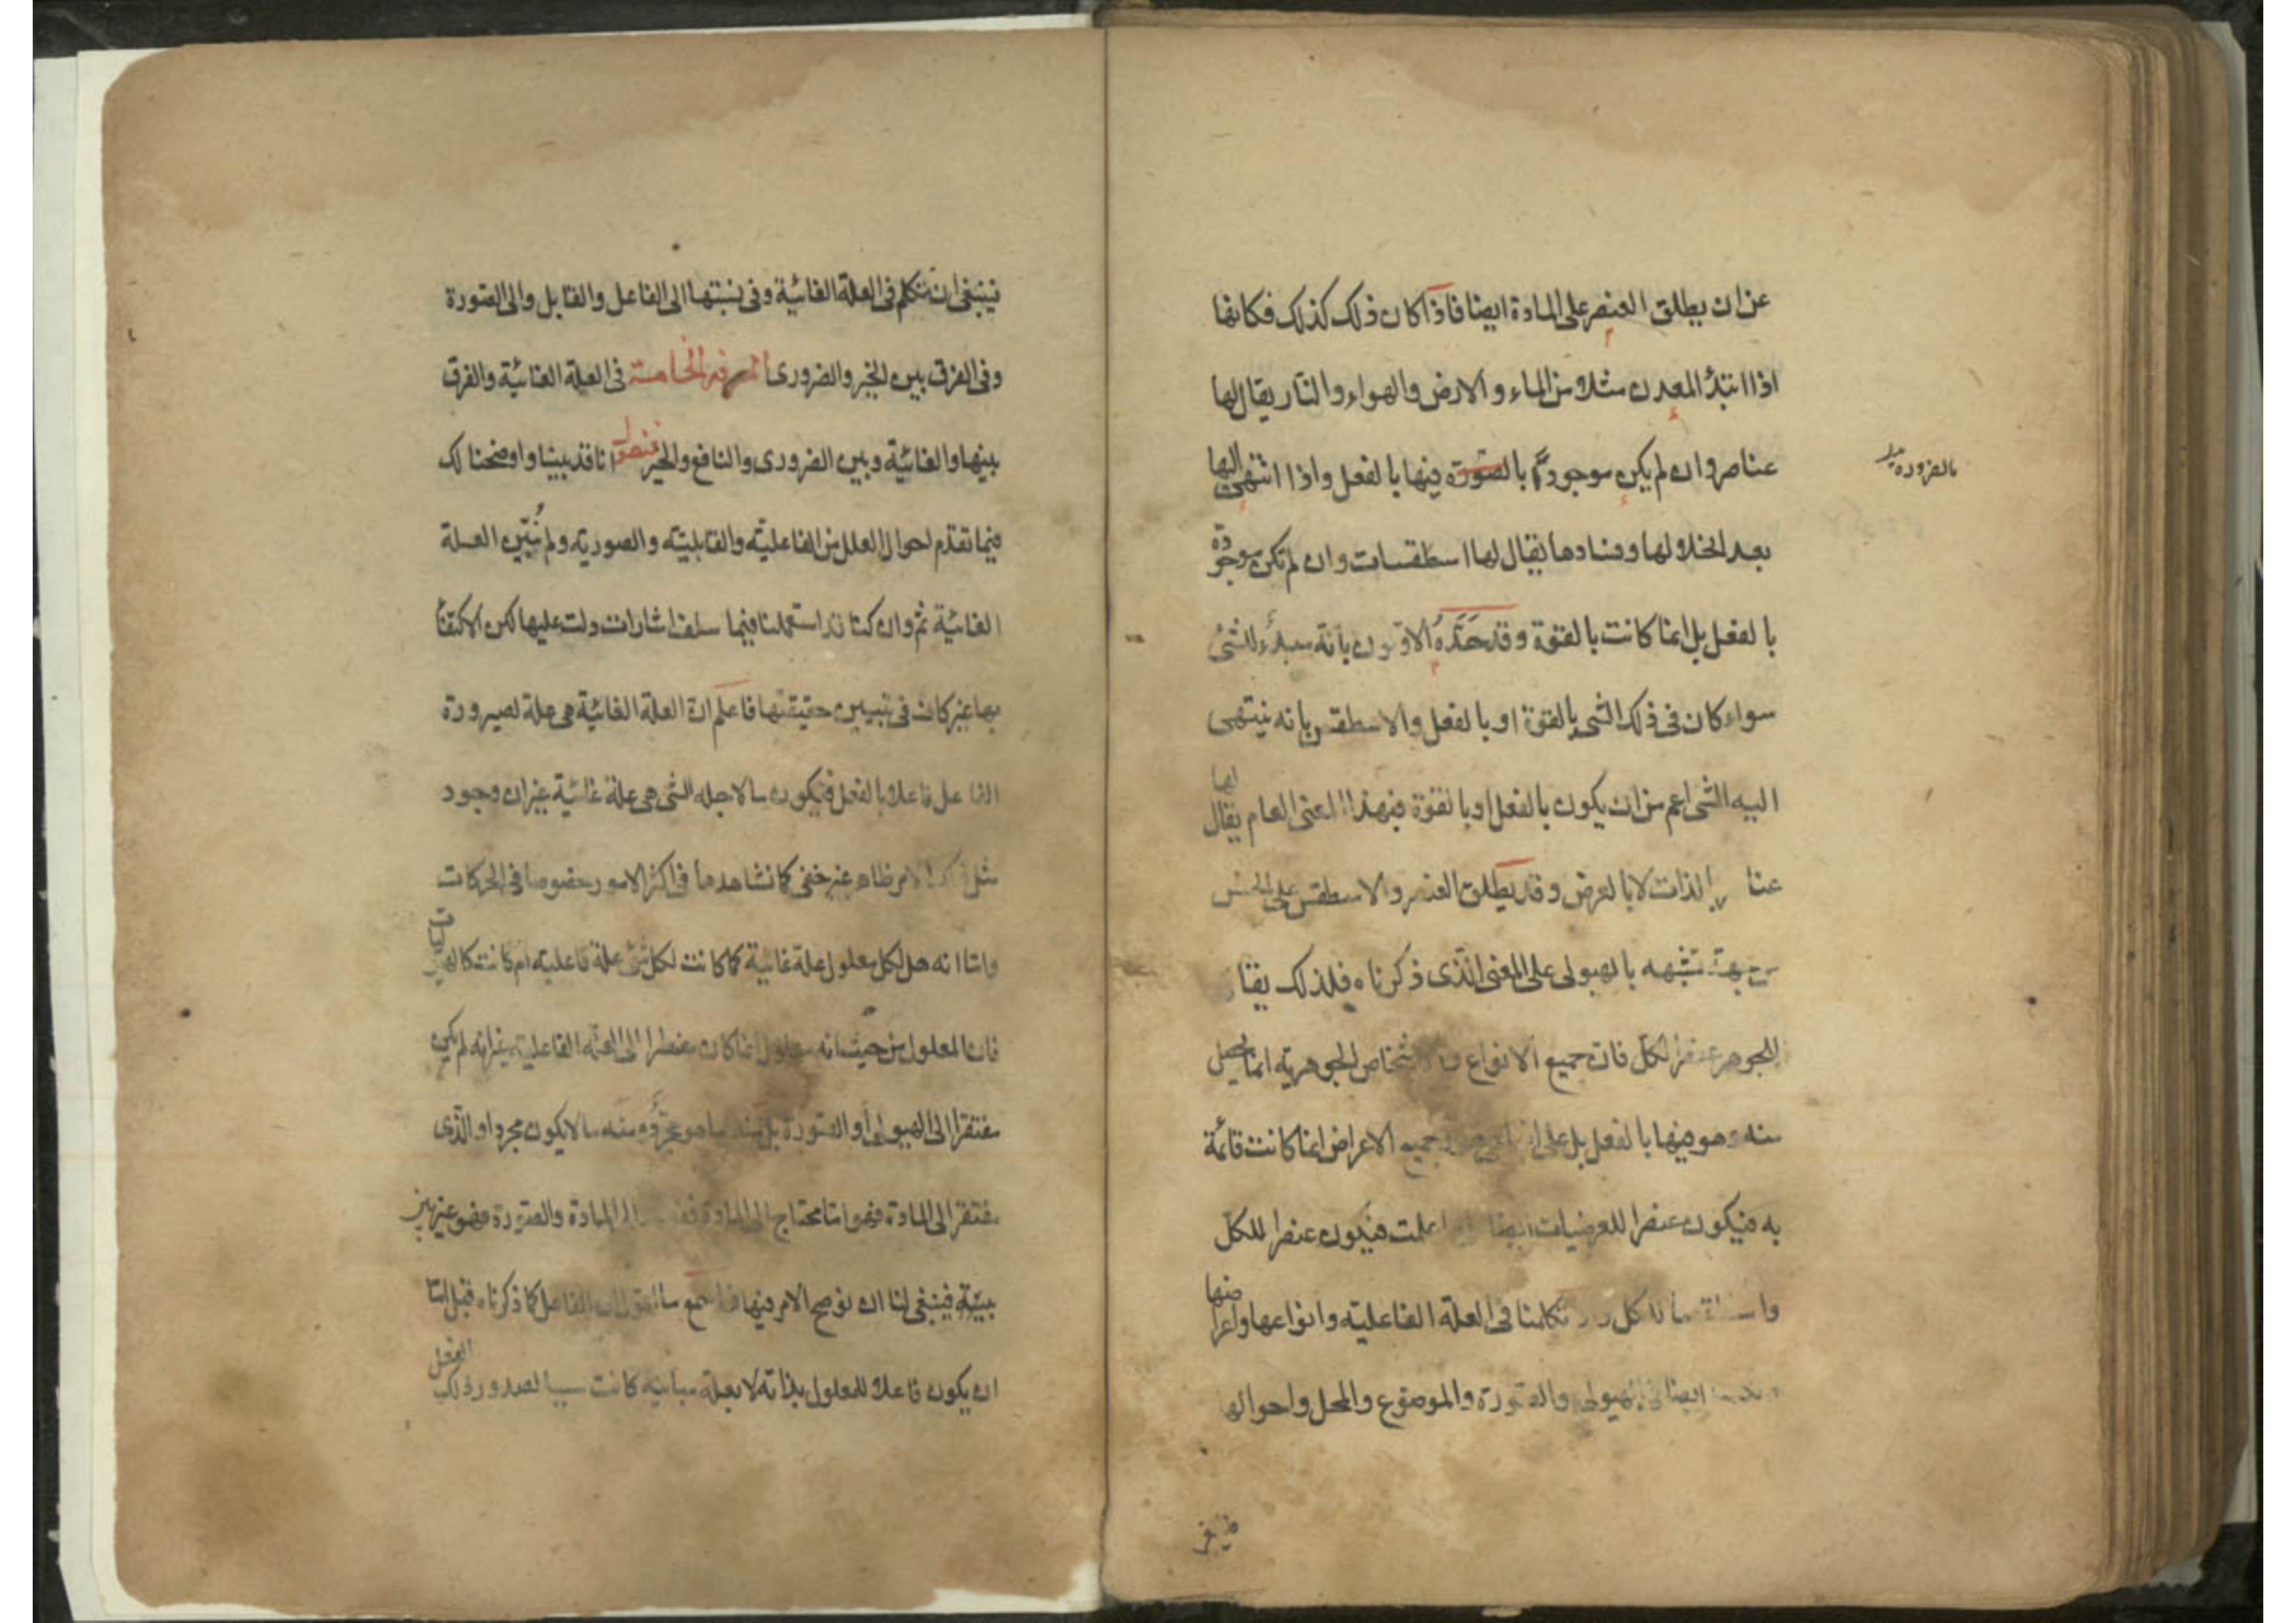 عن ان يطلق العنصر على المادة ايضا فاذا كان ذلك كذلك فكانها
اذا ابتدء المعدن مثلا من الماء والارض والهواء والنار يقال لها
عناصر وان لم يكن موجودة بالصورة فيها بالفعل واذا انتهى اليها
بالضرورة
بعد انحلالها وفسادها يقال لها اسطقسات وان لم تكن موجودة
بالفعل بل انما كانت بالقوة وقد حده الاولون بانه مبدء للشئ
سواء كان في ذلك الشئ بالقوة او بالفعل والاسطقس بانه ينتهى
اليه الشئ اعم من ان يكون بالفعل او بالقوة فبهذا المعنى العام يقال لها
بالذات لا بالعرض وقد يطلق العنصر والاسطقس على الجنس
جهة تشبهه بالهيولى على المعنى الذى ذكرناه فلذلك يقال
للجوهر عنصر الكل فان جميع الانواع والاشخاص الجوهرية انما يحصل
منه وهو فيها بالفعل بل على جميع الاعراض انما كانت قائمة
به فيكون عنصرا للعرضيات ايضا علمت فيكون عنصرا للكل
تكلمنا في العلة الفاعلية وانواعها واعراضها
ايضا في الهيولى والصورة والموضوع والمحل واحوالها
فينبغى ان نتكلم في العلة الغائية وفى نسبتها الى الفاعل والقابل والى الصورة
وفى الفرق بين الخير والضرورى المعرفة الخامسة في العلة الغائية والفرق
بينها والغائية وبين الضرورى والنافع والخير فنقول انا قد بينا واوضحنا لك
فيما تقدم احوال العلل من الفاعلية والقابلية والصورية ولم نبين العلة
الغائية ثم وان كنا قد استعملنا فيما سلف اشارات دلت عليها لكن الاكتفاء
بها غير كاف في تبيين حقيقتها فاعلم ان العلة الغائية هى علة لصيرورة
الفاعل فاعلا بالفعل فيكون ما لاجله الشئ هى علة غائية غير ان وجود
مثل الامر ظاهر غير خفى كما نشاهدها في اكثر الامور خصوصا في الحركات
واما انه هل لكل معلول علة غائية كما كانت لكل شئ علة فاعلية ام كانت
فان المعلول من حيث انه معلول انما كان مضطرا الى العلة الفاعلية غير انه لم يكن
مفتقرا الى الهيولى او الصورة بل منه ما هو مجرد ومنه ما لا يكون مجردا والذى
مفتقر الى المادة فهو اما محتاج الى المادة المادة والصورة فهو غير بين
بينة فينبغى لنا ان نوضح الامر فيها فاسمع ما نقول ان الفاعل كما ذكرناه قبل اما
ان يكون فاعلا للمعلول بذاته لا بعلة مباينة كانت سببا لصدور ذلك الفعل